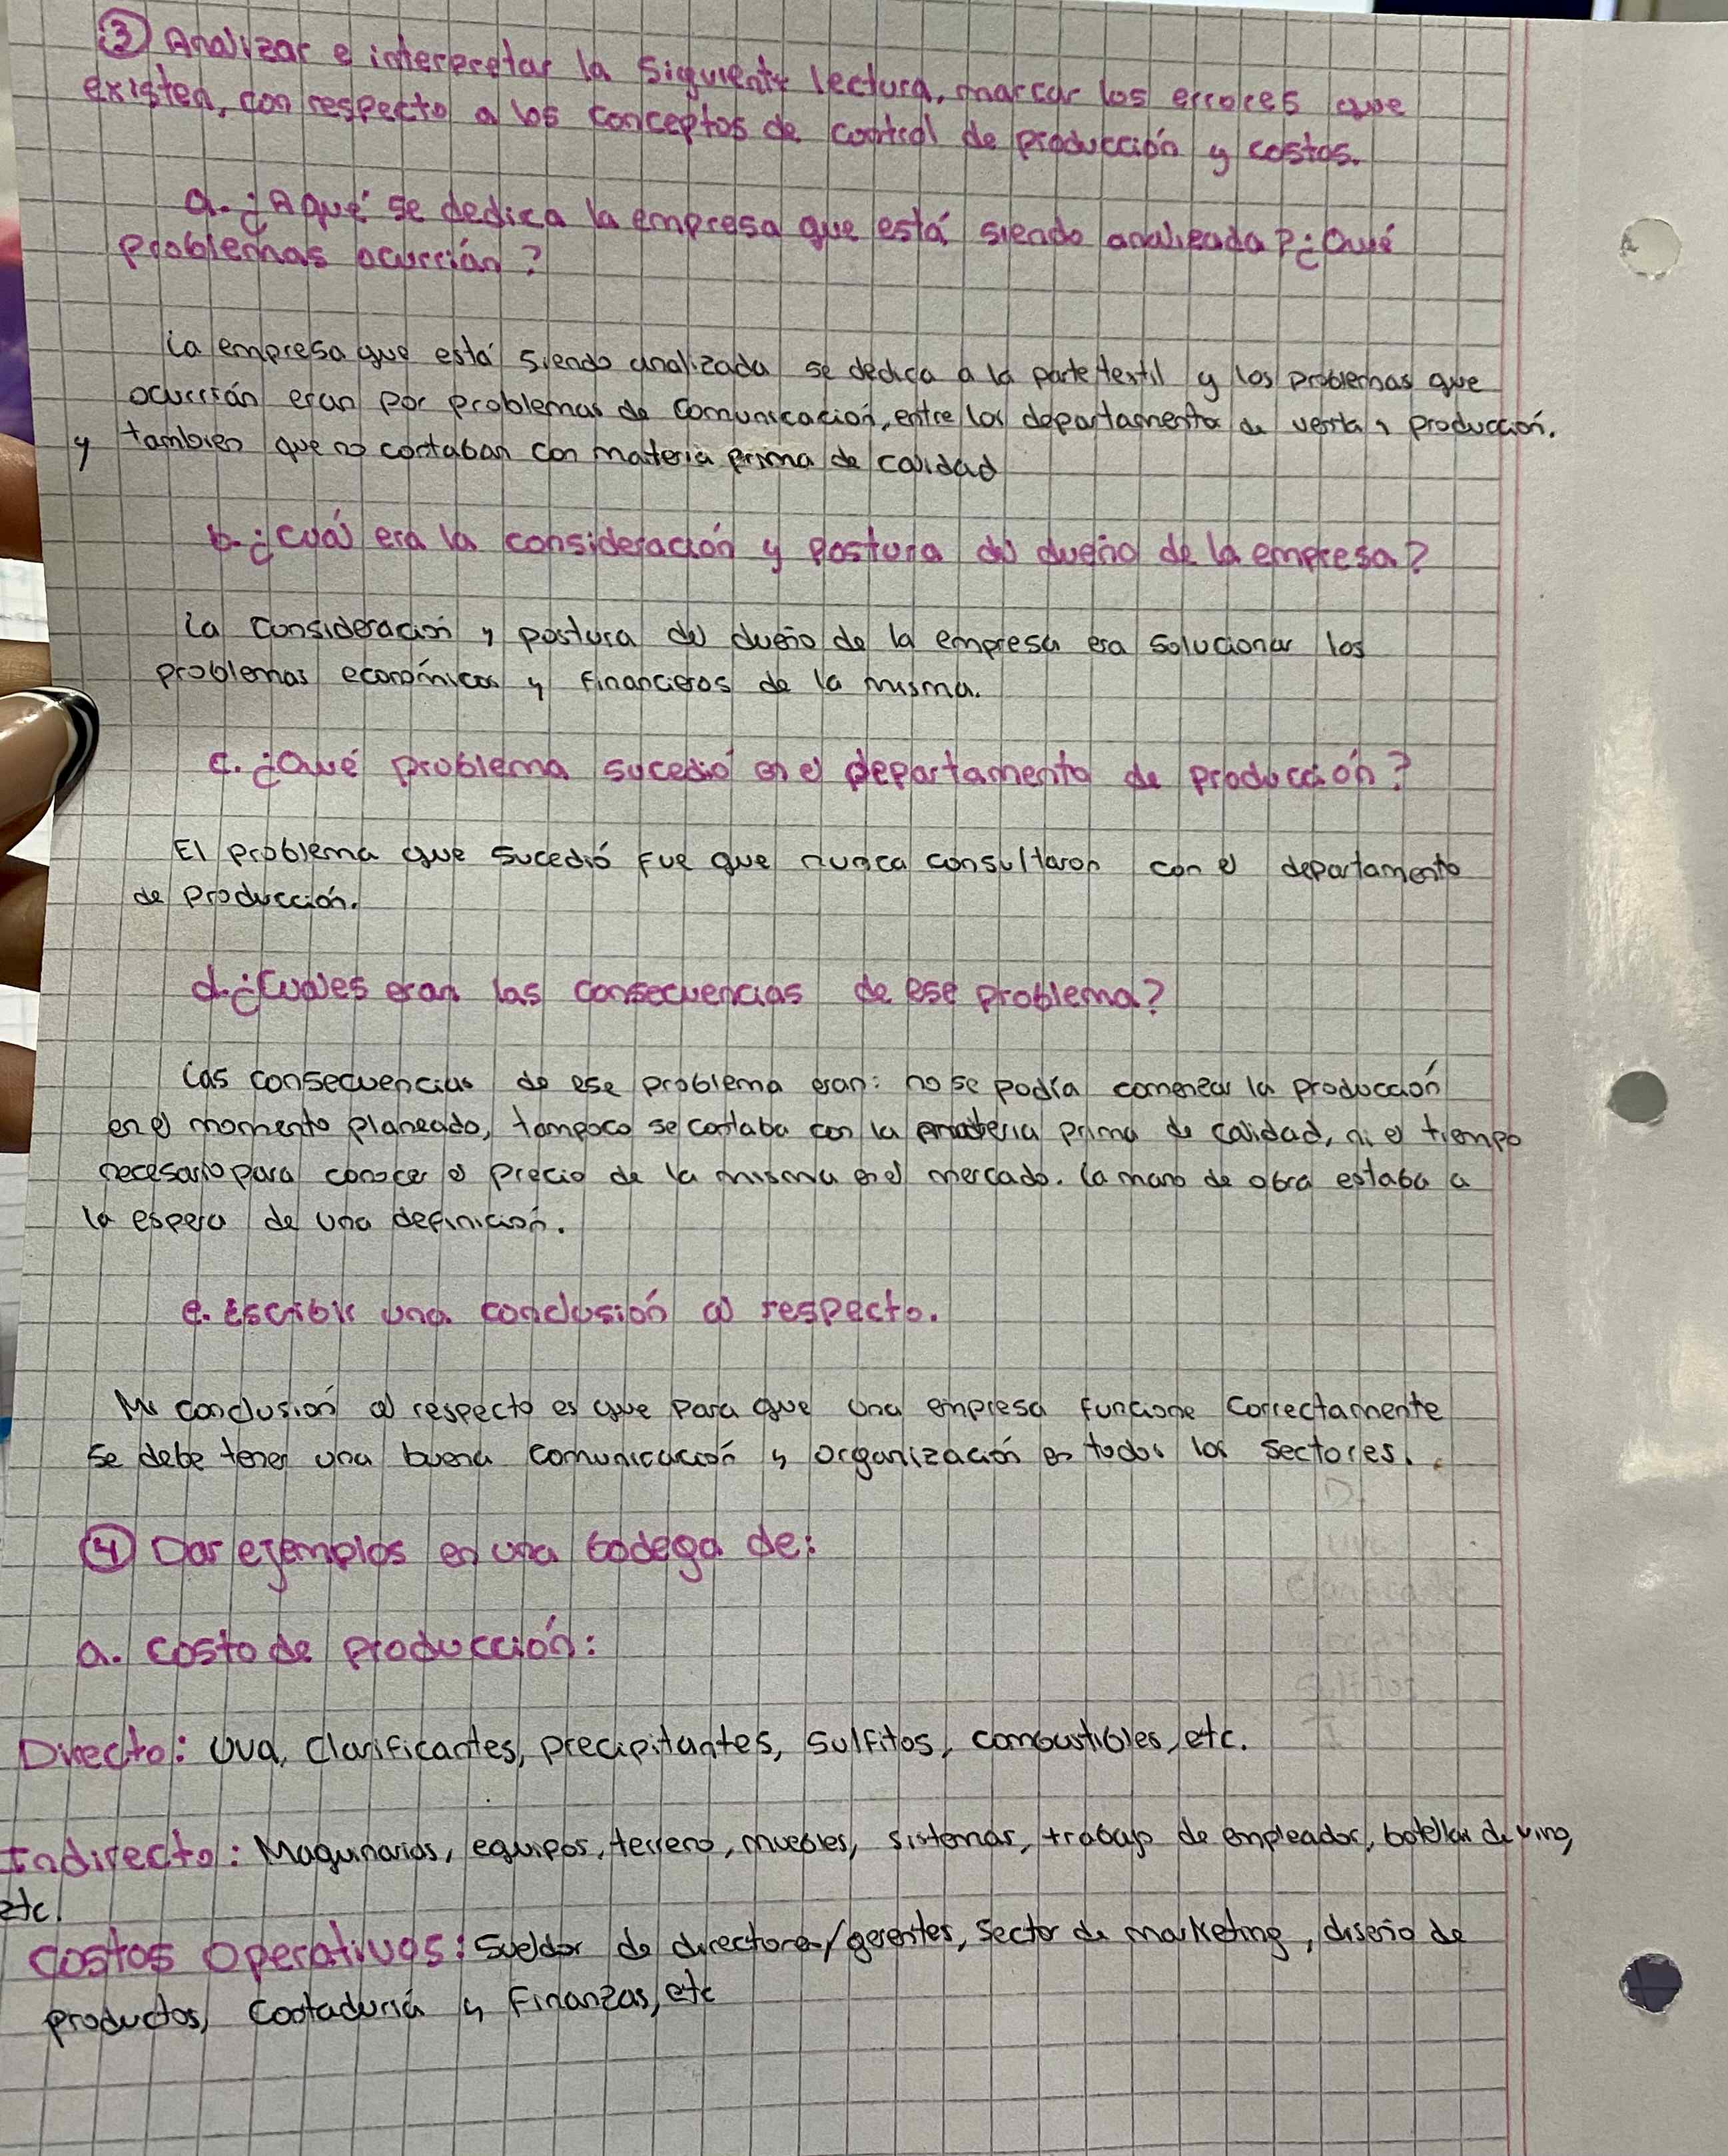 ③ Analizar e interpretar la siguiente lectura, marcar los errores que
existen, con respecto a los conceptos de control de producción y costos.
a. ¿A qué se dedica la empresa que está siendo analizada? ¿Qué
problemas ocurrián?
La empresa que está siendo analizada se dedica a la parte textil y los problemas que
ocurrián eran por problemas de comunicación, entre los departamento de venta y producción.
y tambien que no contaban con materia prima de calidad
b. ¿Cuál era la consideración y postura del dueño de la empresa?
La consideración y postura del dueño de la empresa era solucionar los
problemas económicos y financieros de la misma.
c. ¿Qué problema sucedió en el departamento de producción?
El problema que sucedió fue que nunca consultaron con el departamento
de producción.
d. ¿Cuáles eran las consecuencias de ese problema?
Las consecuencias de ese problema eran: no se podía comenzar la producción
en el momento planeado, tampoco se contaba con la materia prima de calidad, ni el tiempo
necesario para conocer el precio de la misma en el mercado. La mano de obra estaba a
la espera de una definición.
e. Escribir una conclusión al respecto.
Mi conclusión al respecto es que para que una empresa funcione correctamente
se debe tener una buena comunicación y organización en todos los sectores.
④ Dar ejemplos en una bodega de:
a. Costo de producción:
Directo: Uva, Clarificantes, precipitantes, sulfitos, combustibles, etc.
Indirecto: Maquinarias, equipos, terreno, muebles, sistemas, trabajo de empleados, botellas de vino,
etc.
Costos Operativos: Sueldos de directores/gerentes, sector de marketing, diseño de
productos, Contaduría y Finanzas, etc